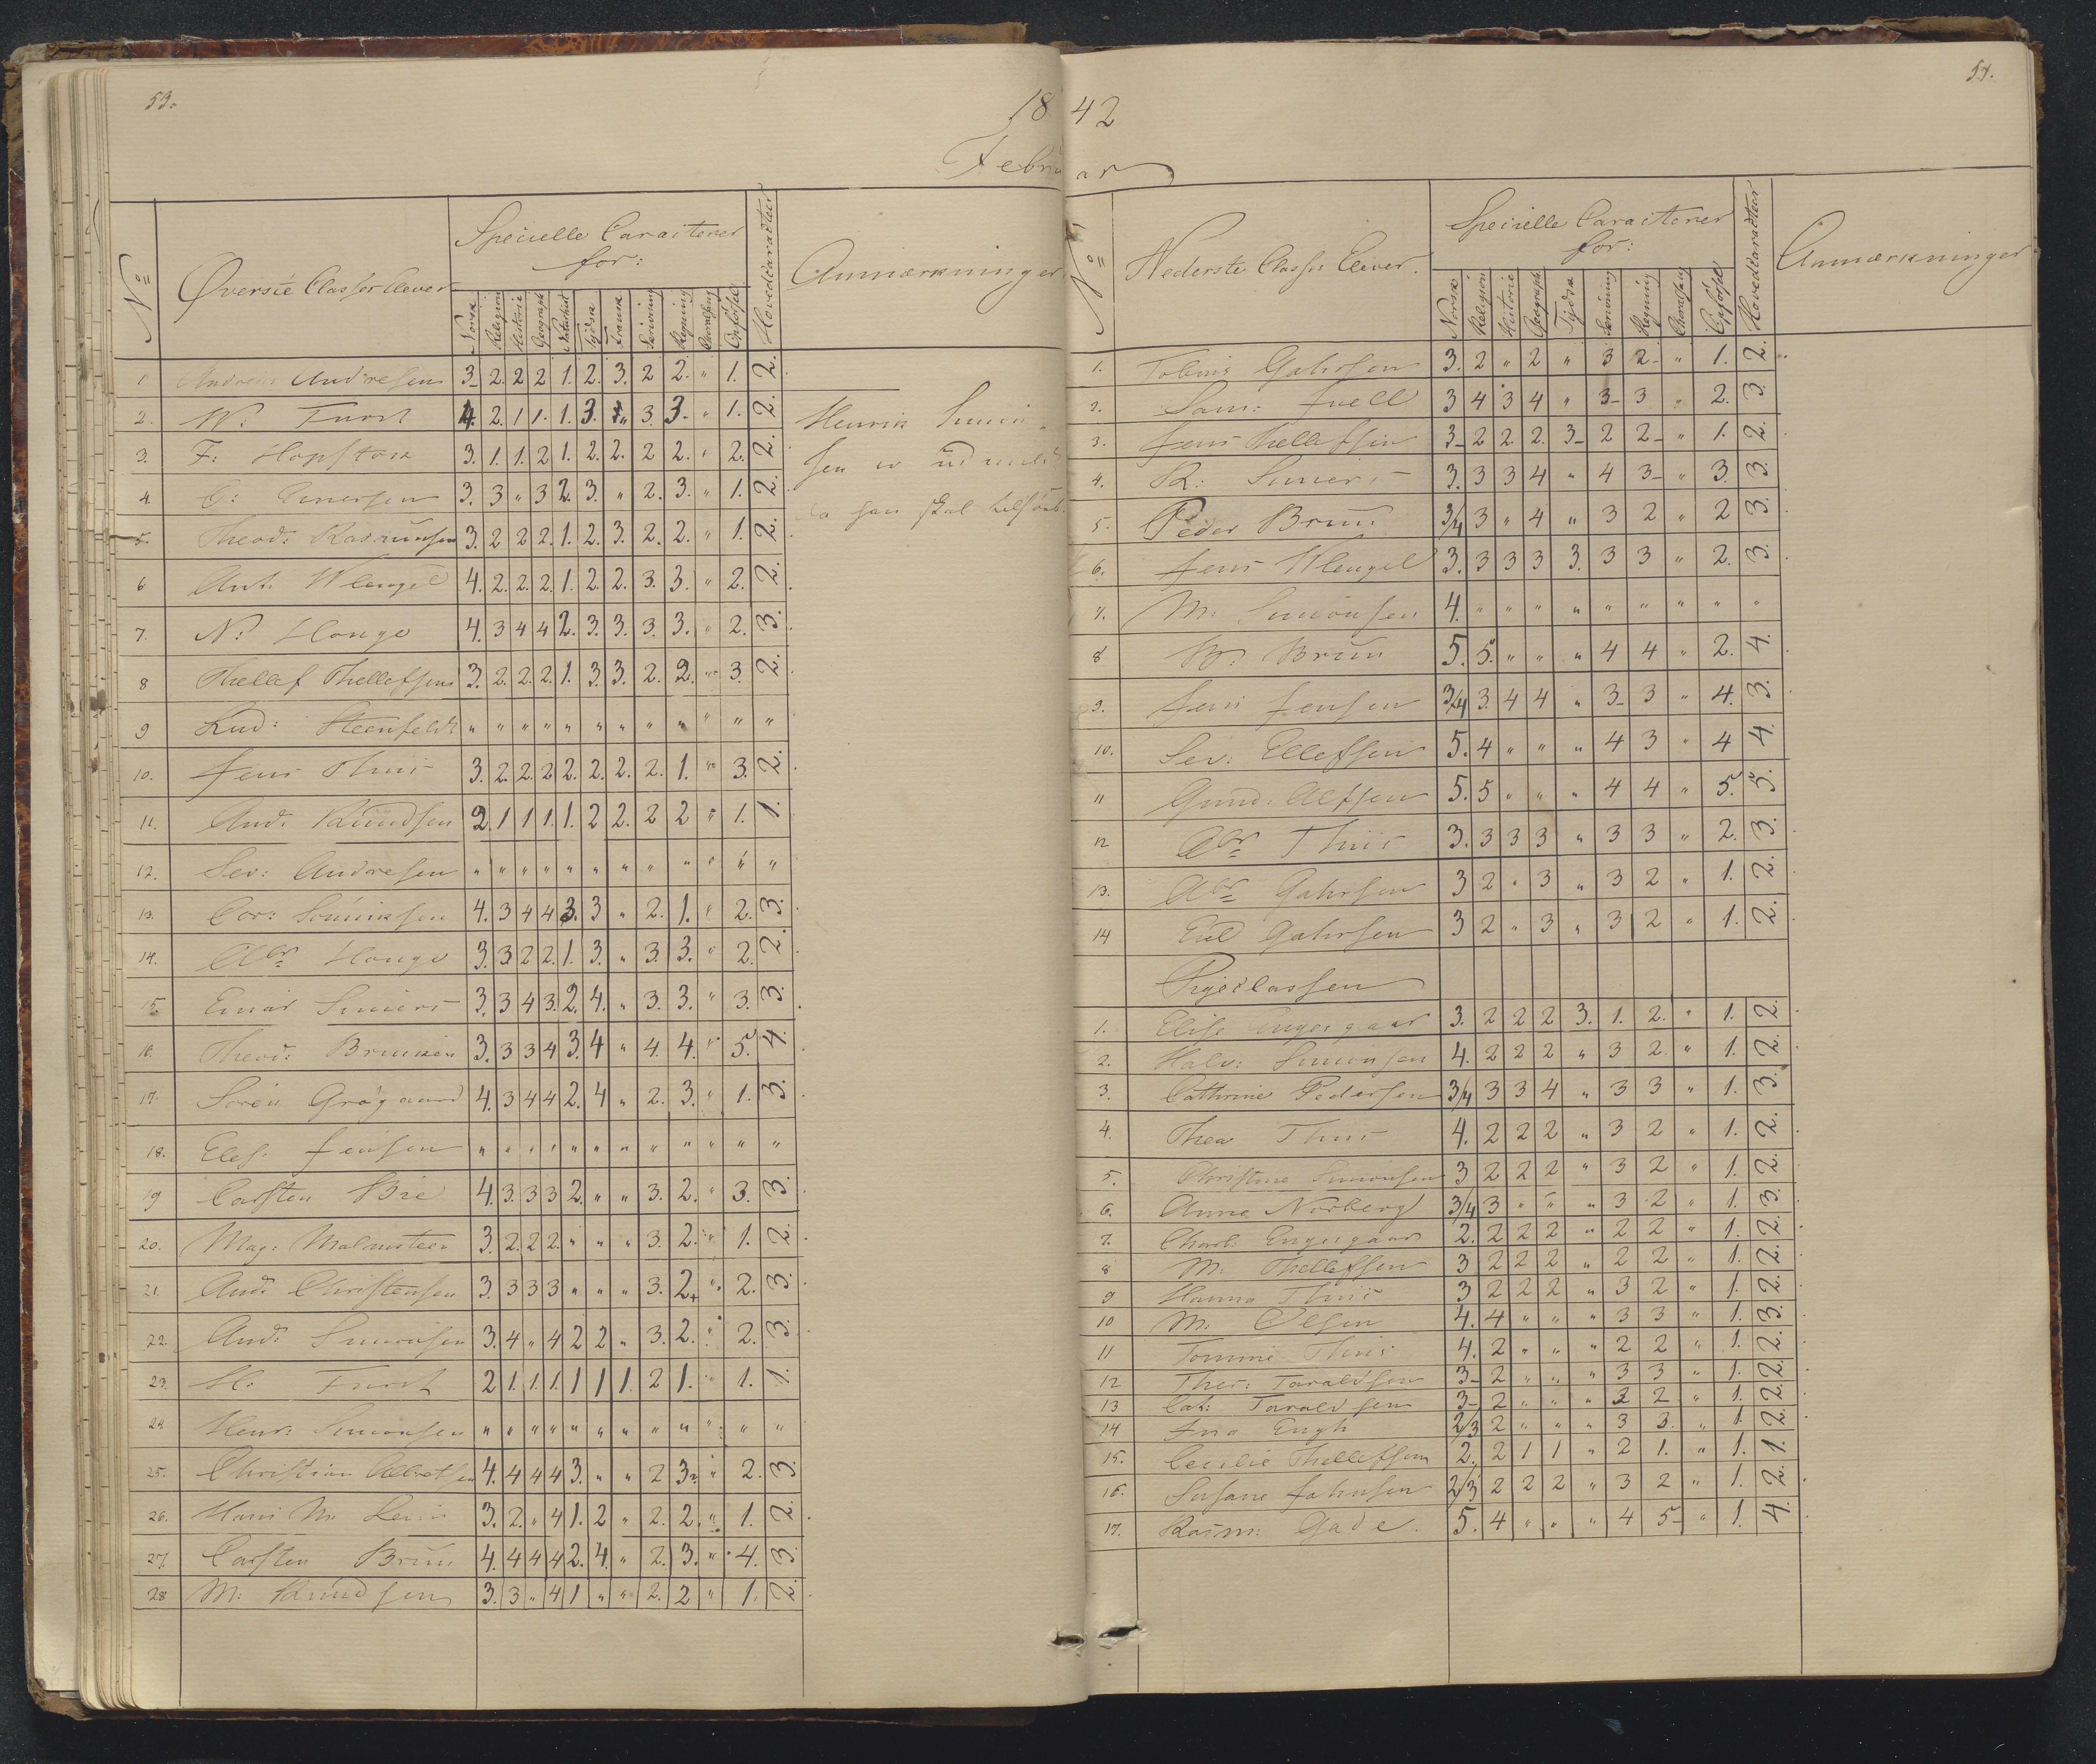 53.
1842
Februar
No
Øverste Classes Elever
Specielle Caracterer
for:
Norsk Religion Historie Geograph Naturhist Tydsk Fransk Skrivning Regning Choralsang Opførsel
Hovedcaracteer
Anmærkninger
1 Andreas Andresen 3 2. 2 2 1. 2. 3. 2 2. " 1. 2.
2. N: Furst 4. 2. 1 1. 1. 3. " 3. 3. " 1. 2.
3. F: Hopstock 3. 1. 1. 2 1. 2. 2. 2 2. " 2. 2.
4. 3. 3 " 3 2. 3. " 2. 3. " 1. 2.
5. Theod: Rasmussen 3. 2 2 2. 1. 2. 3. 2. 2. " 1. 2.
6 Ant. Wlengel 4. 2. 2. 2. 1. 2. 2. 3. 3. " 2. 2.
7. N: Houge 4. 3 4 4 2. 3. 3. 3. 3. " 2. 3.
8 Thellef Thellefsen 3. 2. 2. 2. 1. 3. 3. 2. 2. " 3. 2.
9 Lud: Steenfeldt " " " " " " " " " " " "
10. Jens Thiis 3. 2. 2. 2 2. 2. 2. 2. 1. " 3. 2.
11. And: Knudsen 2. 1 1 1. 1. 2 2. 2 2 " 1. 1.
12. Sev: Andresen " " " " " " " " " " " "
13. Cor: 4. 3 4 4 3. 3 " 2. 1. " 2. 3.
14. Abr Houge 3. 3 2 2. 1. 3. " 3. 3. " 2. 2.
15. Einar Smiers 3. 3 4 3. 2. 4. " 3. 3. " 3. 3.
16. Theod: Bruusen 3. 3 3 4 3. 4 " 4. 4. " 5. 4.
17. Søren Grøgaard 4. 3 4 4 2. 4 " 2. 3. " 1. 3.
18. Elef. Jensen " " " " " " " " " " " "
19 Carsten Bie 4. 3. 3 3 2. " " 3. 2. " 3. 3.
20. Mag: Malmsteen 3. 2. 2 2. " " " 3. 2. " 1. 2.
21. And: Christensen 3. 3 3 3 " " " 3. 2+ " 2. 3.
22. And: Simonsen 3. 4 " 4 2 2 " 3. 2. " 2. 3.
23. H: Furst 2 1. 1. 1. 1 1 1. 2 1. " 1. 1.
24. Henr: Simonsen " " " " " " " " " " " "
25. Christian 4. 4 4 4 3. " " 2 3. " 2. 3.
26. Hans M. 3. 2. " 4 1. 2 " 2. 2. " 1. 2.
27. Carsten Bruu 4. 4 4 4 2. 4. " 2. 3. " 4. 3.
28 M: Knudsen 3. 3 " 4 1 " " 2. 2 " 1. 2.
Henrik Simon=
sen er udmeldt
da han skal tilsøes.
54.
No
Nederste Classes Elever.
Specielle Caracterer
for:
Norsk Religion Historie Geograph Tydsk Skrivning Regning Choralsang Opførsel
Hovedcaracteer
Anmærkninger
1. Tobias Gahrsen 3. 2 " 2 " 3 2- " 1. 2.
2. Sam: Juell 3 4 3 4 " 3- 3 " 2. 3.
3. Jens Thellefsen 3- 2 2 2. 3- 2 2- " 1. 2.
4. R: Smiers 3. 3 3 4 " 4 3- " 3. 3.
5. Peder Bruu 3/4 3 " 4 " 3 2 " 2 3.
6. Jens Wlengel 3. 3 3 3 3. 3 3 " 2. 3.
7. M: Simonsen 4. " " " " " " " " "
8 Bruu 5. 5. " " " 4 4 " 2. 4.
9. Jens Jensen 3/4 3. 4 4 " 3- 3 " 4. 3.
10. Sev: Ellefsen 5. 4 " " " 4 3 " 4 4.
11 Gund: Alfsen 5. 5 " " " 4 4 " 5. 5.
12 Abr Thiis 3. 3 3 3 " 3 3 " 2. 3.
13. Abr Gahrsen 3 2 " 3 " 3 2 " 1. 2.
14 Gahrsen 3 2 " 3 " 3 2 " 1. 2.
Pigeclassen
1. Elise Engesgaar 3. 2 2 2 3. 1. 2. " 1. 2.
2. Halv: Simonsen 4. 2 2 2 " 3 2. " 1. 2.
3. Cathrine Pedersen 3/4 3 3 4 " 3 3 " 1. 3.
4. Thea Thiis 4. 2 2 2 " 3 2 " 1. 2.
5. Christine Simonsen 3 2 2 2 " 3 2 " 1. 2.
6. Anne Norberg 3/4 3 " " " 3 2 " 1. 3.
7. Charl: Engesgaar 2. 2 2 2 " 2 2 " 1. 2.
8 M: Thellefsen 3 2 2 2 " 2 2 " 1. 2.
9 Hanna Thiis 3 2 2 2 " 3 2 " 1. 2.
10 M: Olsen 4. 4 " " " 3 3 " 1. 3.
11 Tomine Thiis 4. 2 " " " 2 2 " 1. 2.
12 Ther: Taraldsen 3- 2 " " " 3 3 " 1. 2.
13 Cat: Taraldsen 3- 2 " " " 2 2 " 1. 2.
14 Ina Engh 2/3 2 " " " 3 3. " 1. 2.
15. Cecilie Thellefsen 2. 2 1 1 " 2 1. " 1. 1.
16. Susane Jahnsen 2/3 2 2 2 " 3 2 " 1. 2.
17. Rasm: Gade. 5. 4 " " " 4 5- " 1. 4.